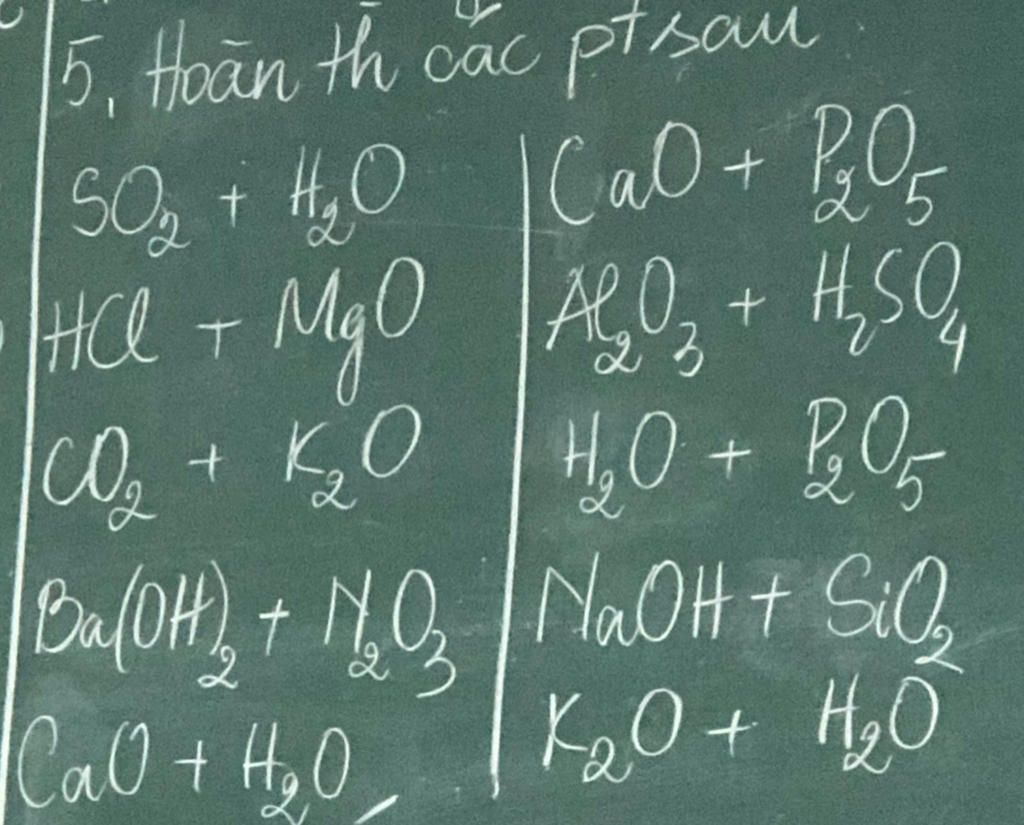 5, Hoàn th các pt sau
SO₂ + H₂O
HCl + MgO
CO₂ + K₂O
Ba(OH)₂ + N₂O₃
CaO + H₂O
CaO + P₂O₅
Al₂O₃ + H₂SO₄
H₂O + P₂O₅
NaOH + SiO₂
K₂O + H₂O